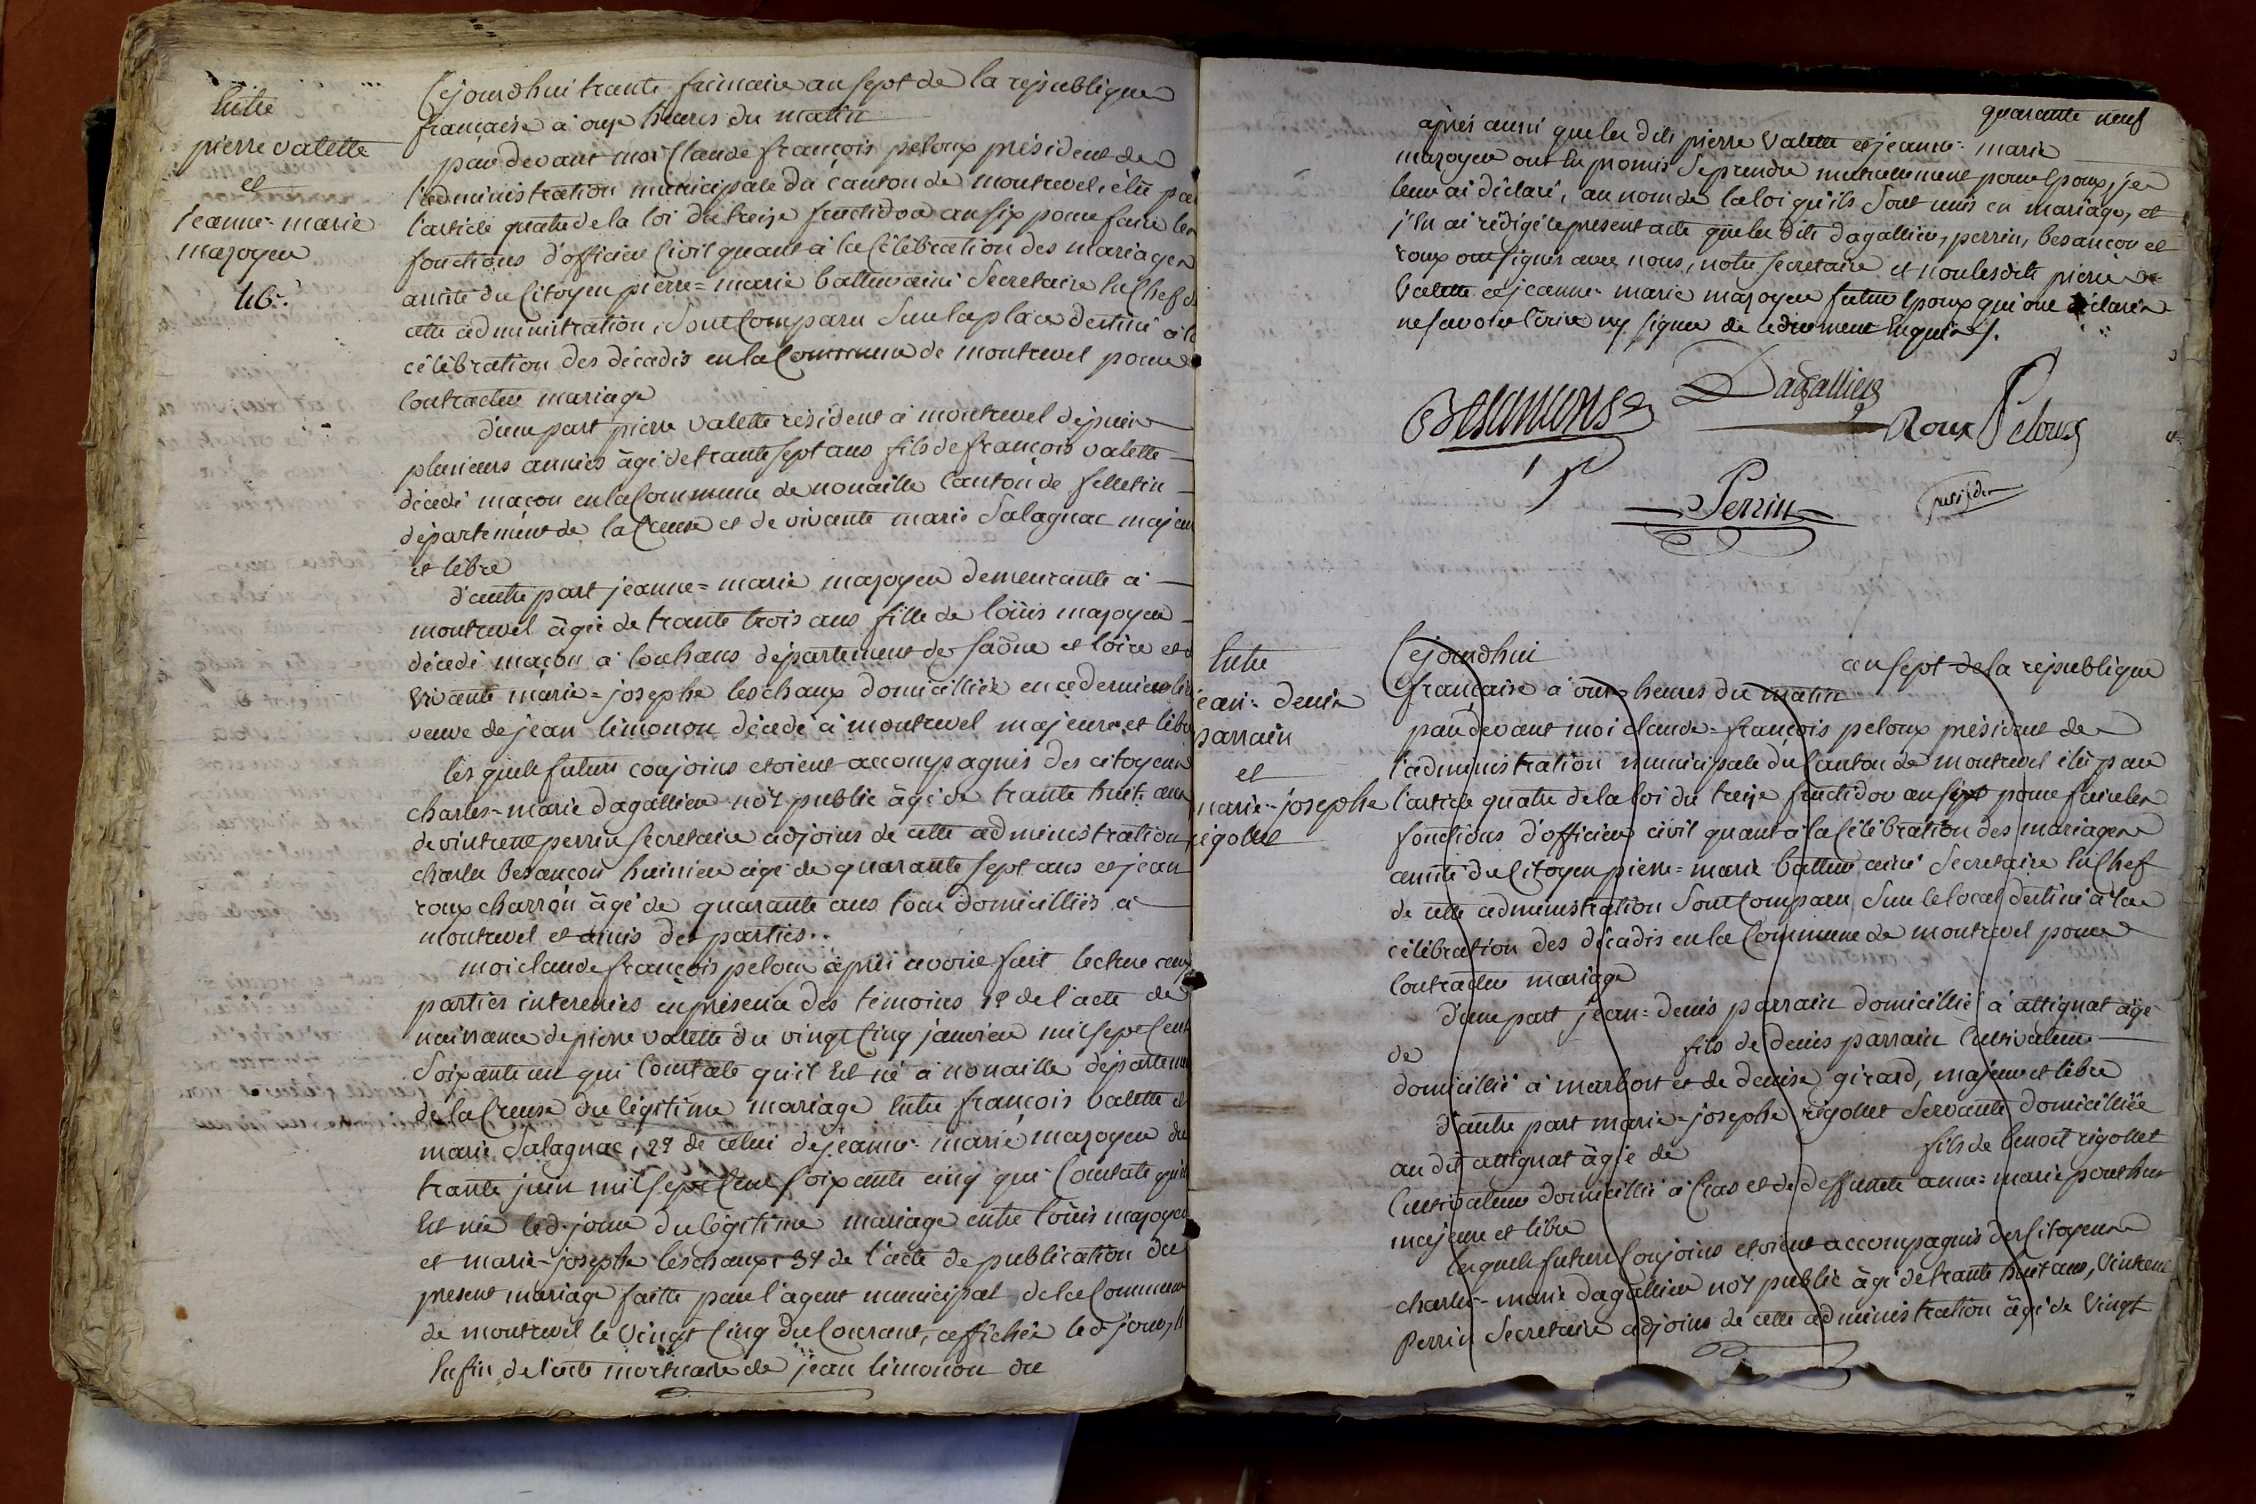 Entre
pierre valette
et
jeanne-marie
mazoyer
46.e
Cejourdhui trante frimaire an sept de la republique
francaise à onze heures du matin
pardevant moi Claude françois peloux président de
l'administration municipale du canton de montrevel élu par
l'article quatre de la loi du treize fructidor an six pour faire les
fonctions d'officier Civil quant à la Célébration des mariages
assisté du Citoyen pierre=marie battur ainé Secretaire En Chef de
cette administration, Sont Comparu Sur la place destiné à la
célébration des décadis en la Commune de montrevel pour
Contracter mariage
d'une part pierre valette résident à montrevel depuis
plusieurs années âgé de trante sept ans fils de françois valette
décédé maçon en la Commune de nouaille Canton de felletin
département de la Creuse et de vivante marie Salagnac majeur
et libre
d'autre part jeanne=marie mazoyer demeurante à
montrevel âgée de trante trois ans fille de loüis mazoyer
décédé maçon à louhans département de Saône et loire et de
vivante marie=josephe leschaux domicilliée en ce dernier lieu
veuve de jean limonon décédé à montrevel majeure et libre
lesquels futurs conjoins etoient accompagnés des citoyens
charles-marie dagallier no.re public âgé de trante huit ans
de vintrent perrin secretaire adjoins de cette administration
charles besançon huissier âgé de quarante sept ans et jean
roux charron âgé de quarante ans tous domicilliés à
montrevel et amis des parties.
moi claude françois peloux après avoir fait lecture aux
parties interessées en présence des témoins 1.o de l'acte de
naissance de pierre valette du vingt Cinq janvier mil sept Cent
Soixante un qui Constate qu'il Est né à nouaille département
de la Creuse du légitime mariage Entre françois valette et
marie Salagnac, 2.o de celui de jeanne-marie mazoyer du
trante juin mil sept Cent soixante cinq qui Constate qu'elle
Est née led. jour du légitime mariage entre loüis mazoyer
et marie-josephe leschaux 3.o de l'acte de publication du
present mariage faitte par l'agent municipal de la Commune
de montrevel le Vingt Cinq du Courant, affichée led. jour, et
Enfin de l'acte mortuaire de jean limonon du
quarante neuf
après aussi que les dits pierre Valette et jeanne-marie
mazoyer ont Eu promis Se prendre mutuellement pour Epoux, je
leur ai déclaré, au nom de la loi qu'ils Sont unis en mariage, et
j'En ai rédigé le present acte que les dits dagallier, perrin, besançon et
roux ont signés avec nous, notre secretaire et non lesdits pierre
Valette et jeanne-marie mazoyer futurs Epoux qui ont déclarés
ne savoir Ecrire ny signer de ce duement Enquis.
Besançons
Dagallier
Roux Peloux
Perrin
presiden
Entre
jean-denis
parrain
et
marie-josephe
rigollet
Cejourdhui an sept de la republique
francaise à onze heures du matin
pardevant moi claude=françois peloux président de
l'administration municipale du Canton de montrevel élu par
l'article quatre de la loi du treize fructidor an six pour faire les
fonctions d'officier civil quant à la Célébration des mariages
assisté du Citoyen pierre=marie battur ainé Secretaire En Chef
de cette administration Sont Comparu Sur le local destiné à la
célébration des décadis en la Commune de montrevel pour
Contracter mariage
d'une part jean=denis parrain domicillié à attignat âgé
de fils de denis parrain Cultivateur
domicillié à marbost et de denise girard, majeur et libre
d'autre part marie-josephe rigollet Servante domicilliée
au dit attignat âgée de fils de benoit rigollet
Cultivateur domicillié à Cras et de deffunte anne=marie pouthus
majeure et libre
lesquels futurs Conjoins etoient accompagnés des Citoyens
charles-marie dagallier no.re public âgé de trante huit ans, Vintrent
Perrin Secretaire adjoins de cette administration âgé de Vingt